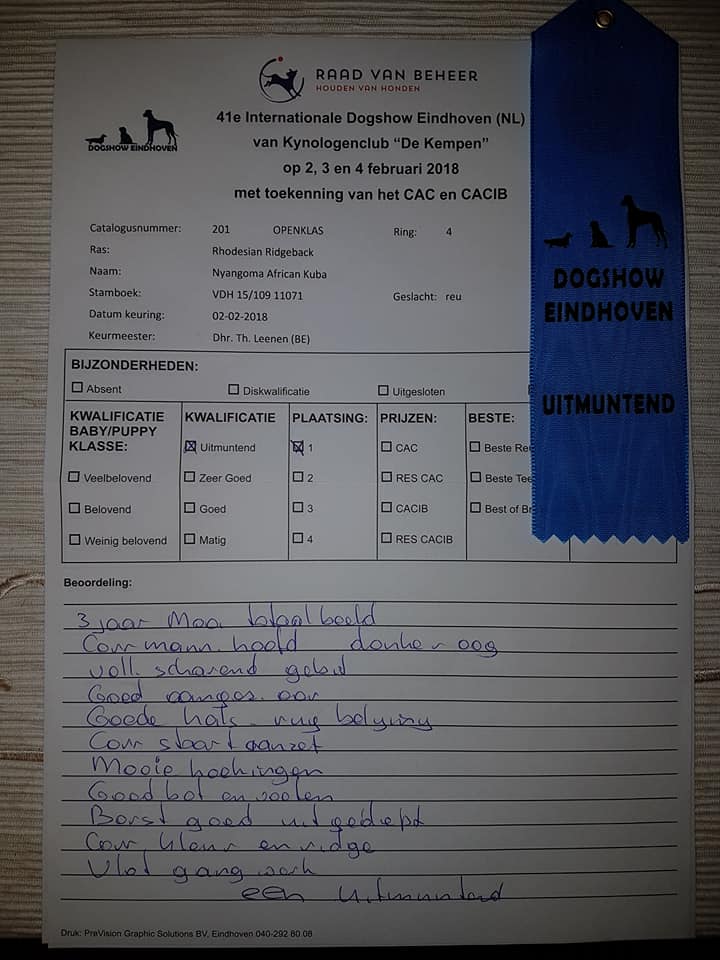 RAAD VAN BEHEER
HOUDEN VAN HONDEN
DOGSHOW EINDHOVEN
41e Internationale Dogshow Eindhoven (NL)
van Kynologenclub “De Kempen”
op 2, 3 en 4 februari 2018
met toekenning van het CAC en CACIB
Catalogusnummer: 201 OPENKLAS Ring: 4
Ras: Rhodesian Ridgeback
Naam: Nyangoma African Kuba
Stamboek: VDH 15/109 11071 Geslacht: reu
Datum keuring: 02-02-2018
Keurmeester: Dhr. Th. Leenen (BE)
DOGSHOW
EINDHOVEN
UITMUNTEND
BIJZONDERHEDEN:
Absent Diskwalificatie Uitgesloten
KWALIFICATIE BABY/PUPPY KLASSE:
Veelbelovend
Belovend
Weinig belovend
KWALIFICATIE
Uitmuntend
Zeer Goed
Goed
Matig
PLAATSING:
1
2
3
4
PRIJZEN:
CAC
RES CAC
CACIB
RES CACIB
BESTE:
Beste Reu
Beste Tee
Best of Br
Beoordeling:
3 jaar Mooi totaalbeeld
Corr mann. hoofd donker oog
voll. scharend gebit
Goed aanges. oor
Goede hals - rug belijning
Corr staartaanzet
Mooie hoekingen
Goed bot en voeten
Borst goed uitgediept
Corr. kleur en ridge
Vlot gangwerk
een Uitmuntend
Druk: PreVision Graphic Solutions BV, Eindhoven 040-292 80 08